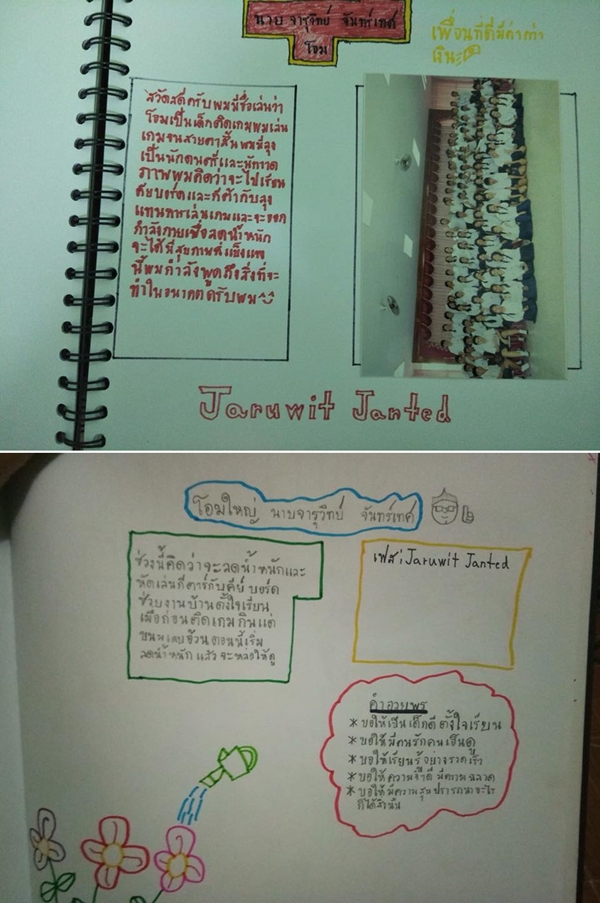 นาย จารุวิทย์ จันทร์เทศ
โอม
เพื่อนที่ดีมีค่ากว่า
เงินะ
สวัสดีครับผมมีชื่อเล่นว่า
โอมเป็นเด็กติดเกมผมเล่น
เกมจนสายตาสั้นผมมีลุง
เป็นนักดนตรีและนักวาด
ภาพผมคิดว่าจะไปเรียน
คีย์บอร์ดและกีต้ากับลุง
แทนการเล่นเกมและจะออก
กำลังกายเพื่อลดน้ำหนัก
จะได้มีสุขภาพที่แข็งแรง
นี้ผมกำลังพูดถึงสิ่งที่จะ
ทำในอนาคตครับผม
Jaruwit Janted
โอมใหญ่ นายจารุวิทย์ จันทร์เทศ
ช่วงนี้คิดว่าจะลดน้ำหนักและ
หัดเล่นกีตาร์กับคีย์ บอร์ด
ช่วยงานบ้านตั้งใจเรียน
เมื่อก่อนติดเกมกินแต่
ขนมเลยอ้วนตอนนี้เริ่ม
ลดน้ำหนัก แล้ว จะหล่อให้ดู
เฟส : Jaruwit Janted
คำอวยพร
* ขอให้เป็นเด็กดี ตั้งใจเรียน
* ขอให้มีคนรักคนเอ็นดู
* ขอให้เรียนรู้อย่างรวดเร็ว
* ขอให้ ความจำดี มีความฉลาด
* ขอให้ มีความสุขปรารถนาอะไร
ก็ได้ดั่งนั้น